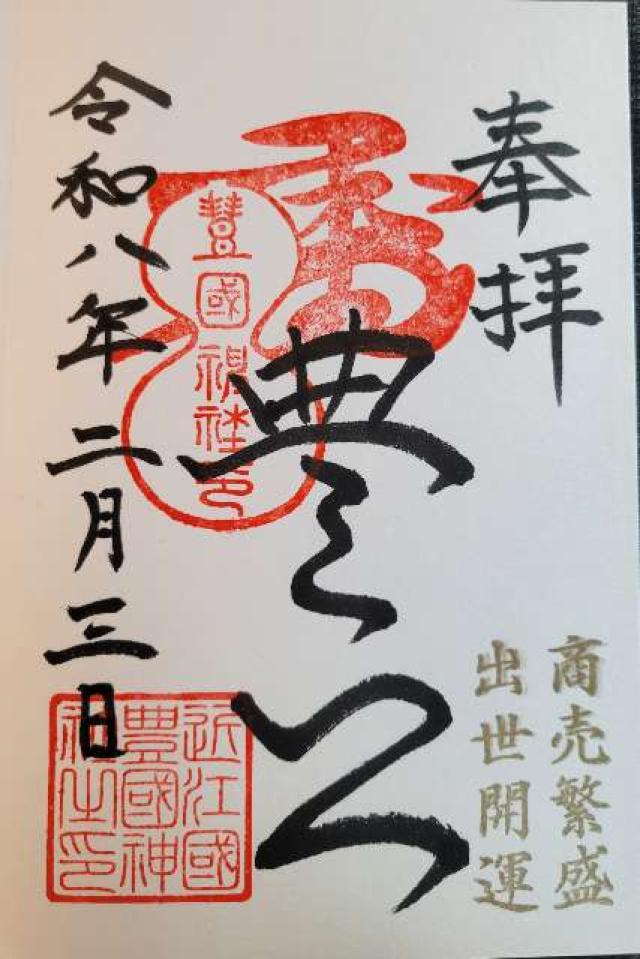 奉拝
商売繁盛
出世開運
豊公
豐國神社印
令和八年二月三日
近江國
豐國神
社之印